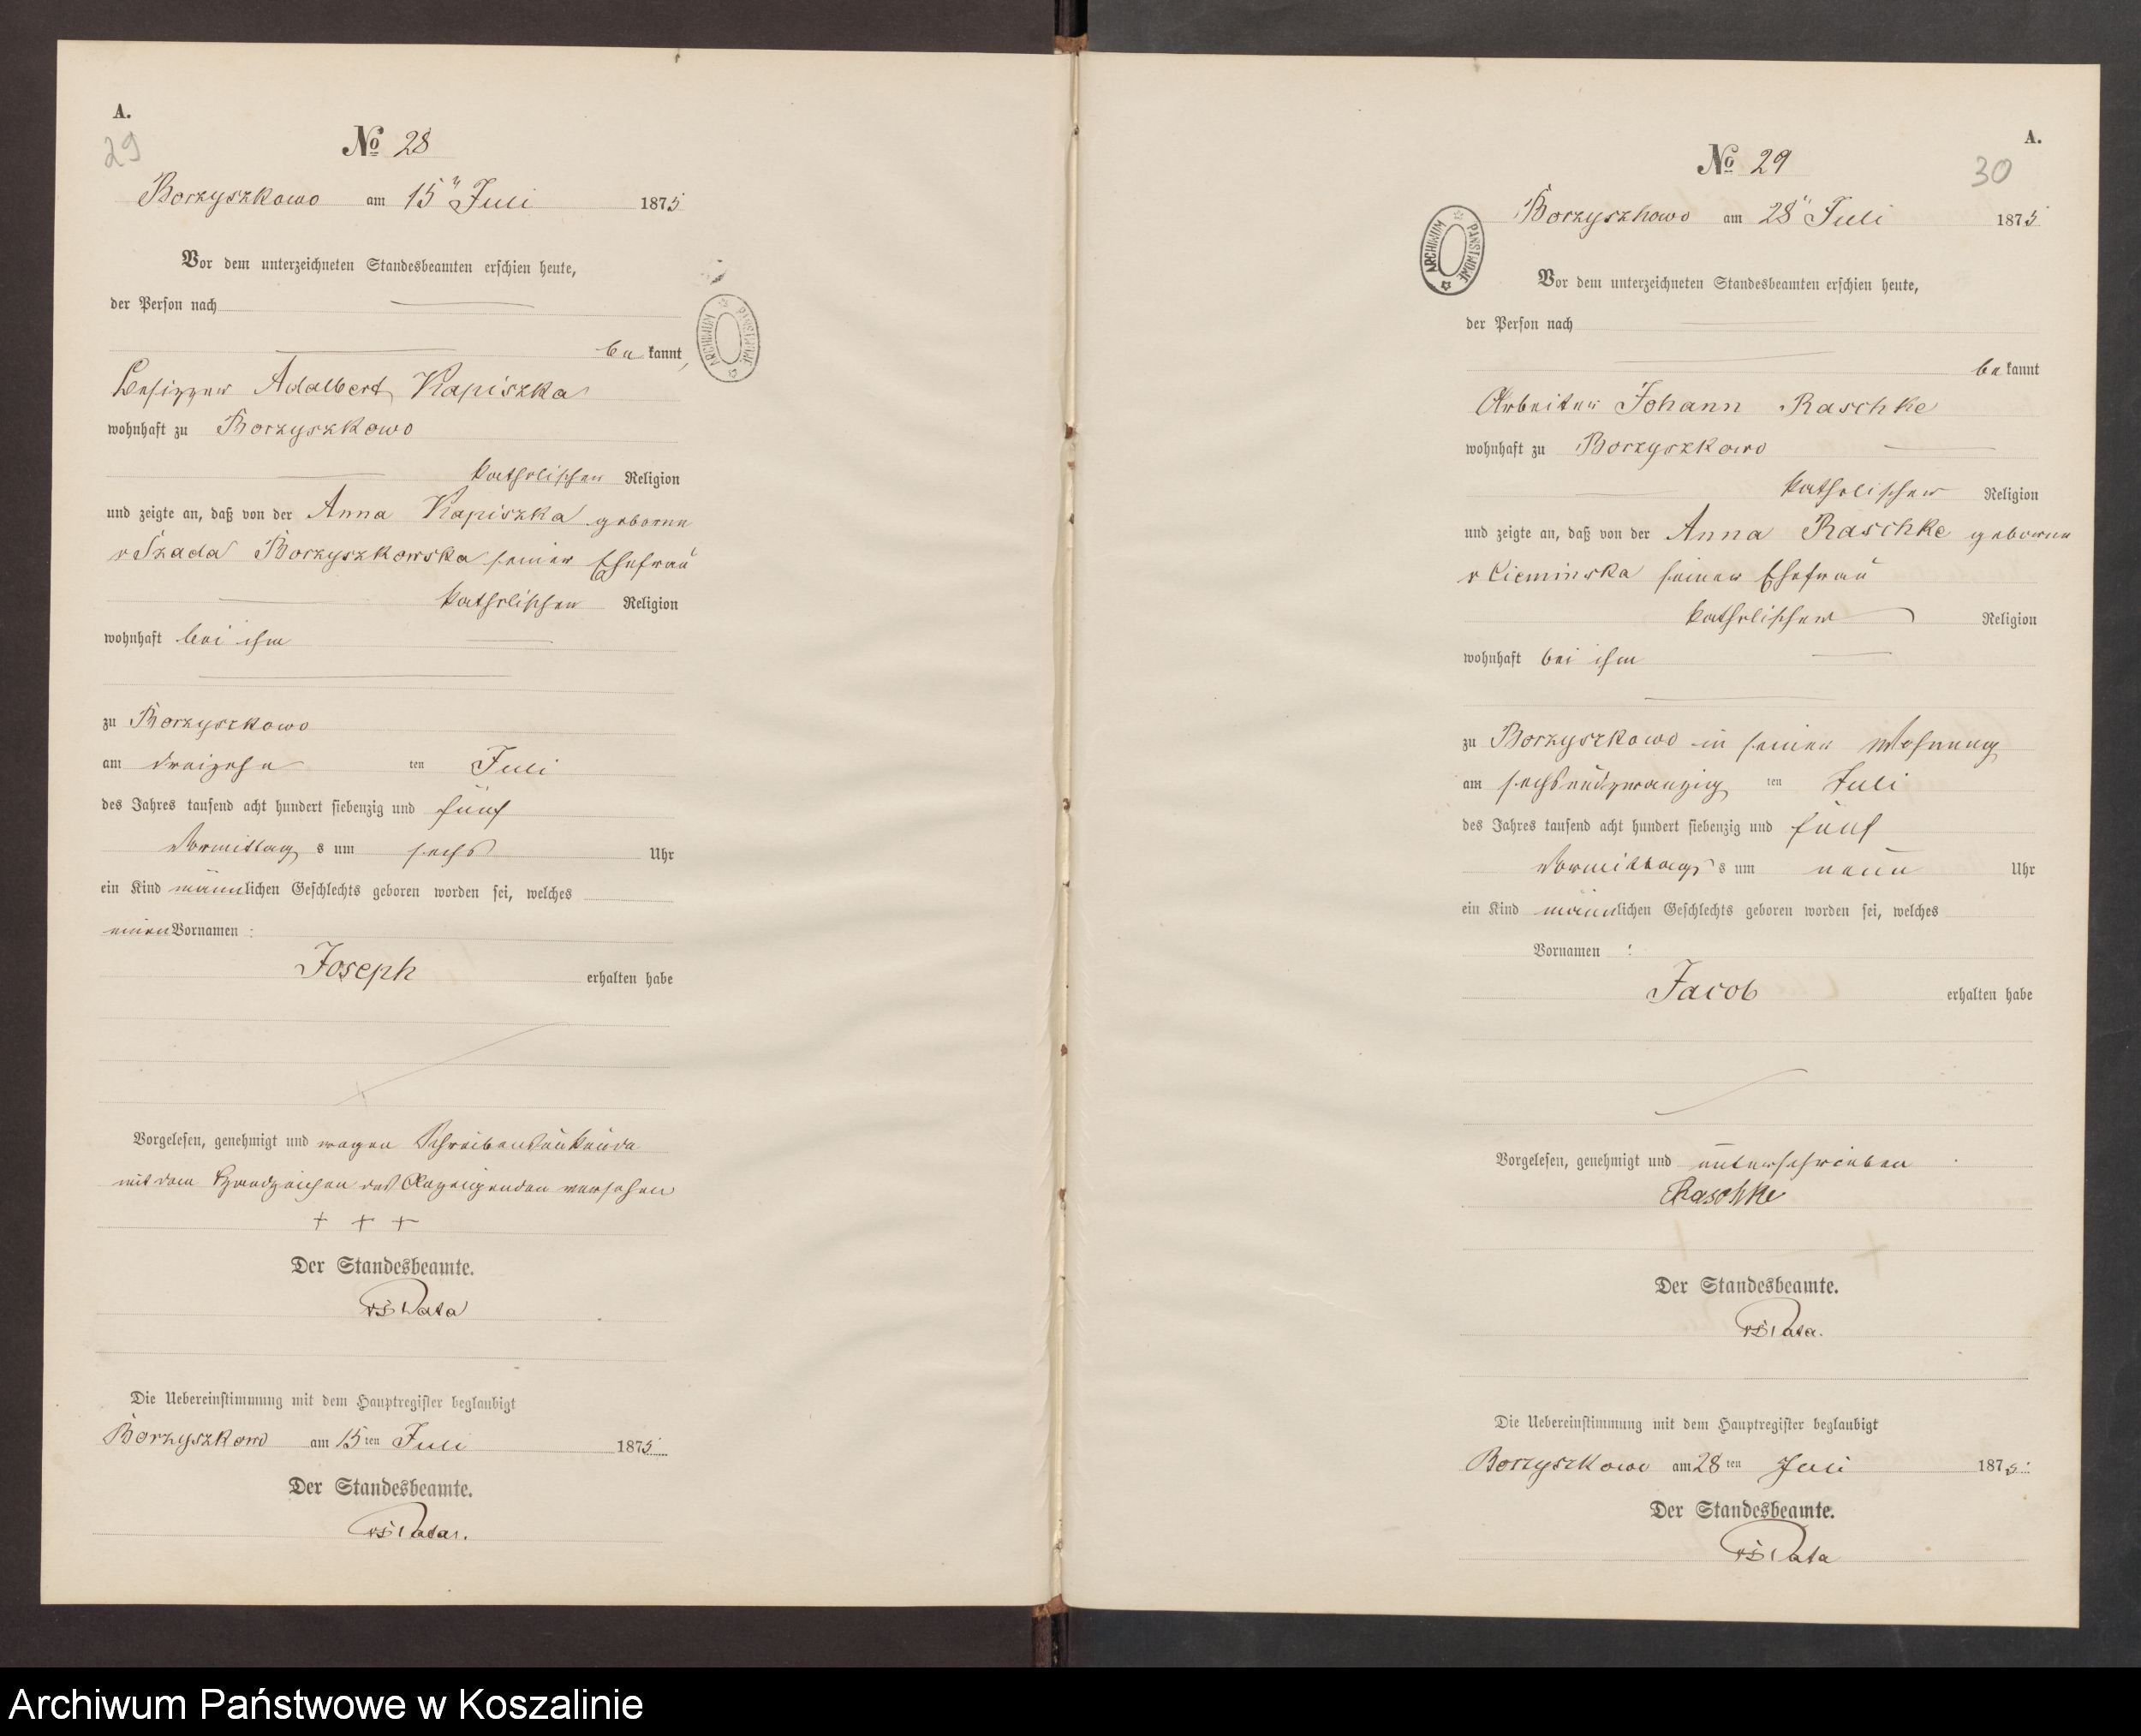 A.
29
№ 28
Borzyszkowo am 15" Juli 1875
Vor dem unterzeichneten Standesbeamten erschien heute,
der Person nach
be kannt,
Besitzer Adalbert Kapiszka
wohnhaft zu Borzyszkowo
katholischer Religion
und zeigte an, daß von der Anna Kapiszka geborene
v Szada Borzyszkowska seiner Ehefrau
katholischer Religion
wohnhaft bei ihm
zu Borzyszkowo
am dreizehn ten Juli
des Jahres tausend acht hundert siebenzig und fünf
Vormittag s um sechs Uhr
ein Kind männlichen Geschlechts geboren worden sei, welches
einen Vornamen :
Joseph erhalten habe
Vorgelesen, genehmigt und wegen Schreibensunkunde
mit dem Handzeichen des Anzeigenden versehen
+ + +
Der Standesbeamte.
Die Uebereinstimmung mit dem Hauptregister beglaubigt
Borzyszkowo am 15 ten Juli 1875
Der Standesbeamte.
A.
30
№ 29
Borzyszkowo am 28" Juli 1875
ARCHIWUM PAŃSTWOWE
Vor dem unterzeichneten Standesbeamten erschien heute,
der Person nach
be kannt
Arbeiter Johann Raschke
wohnhaft zu Borzyszkowo
katholischer Religion
und zeigte an, daß von der Anna Raschke geborene
v Cieminska seiner Ehefrau
katholischer Religion
wohnhaft bei ihm
zu Borzyszkowo in seiner Wohnung
am sechsundzwanzig ten Juli
des Jahres tausend acht hundert siebenzig und fünf
Vormittags s um neun Uhr
ein Kind männlichen Geschlechts geboren worden sei, welches
Vornamen :
Jacob erhalten habe
Vorgelesen, genehmigt und unterschrieben
Raschke
Der Standesbeamte.
Die Uebereinstimmung mit dem Hauptregister beglaubigt
Borzyszkowo am 28 ten Juli 1875.
Der Standesbeamte.
Archiwum Państwowe w Koszalinie